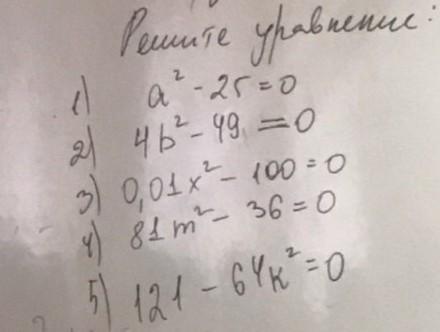 Решите уравнение:
1) a² - 25 = 0
2) 4b² - 49 = 0
3) 0,01x² - 100 = 0
4) 81m² - 36 = 0
5) 121 - 64к² = 0